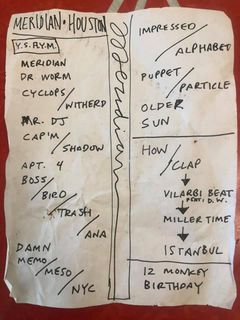 MERIDIAN • HOUSTON
Y.S.A.Y.M.
MERIDIAN
DR WORM
CYCLOPS/
WITHERD
MR. DJ
CAP'M/
SHADOW
APT. 4
BOSS/
BIRD/
TRASH/
ANA
DAMN
MEMO/
MESO/
NYC
Meridian
IMPRESSED/
ALPHABET
PUPPET/
PARTICLE
OLDER
SUN
HOW/
CLAP
VILARBI BEAT
FEAT: D.W.
MILLER TIME
ISTANBUL
12 MONKEY
BIRTHDAY